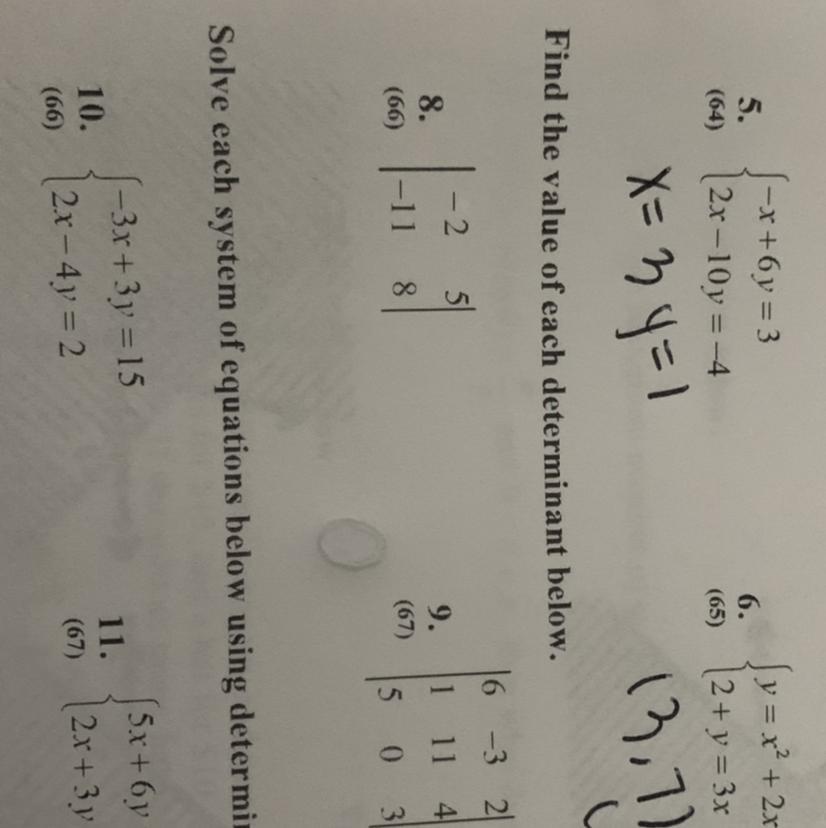 5. (64) { -x + 6y = 3
2x - 10y = -4
x = 3 y = 1
6. (65) { y = x² + 2x
2 + y = 3x
(3, 7)
Find the value of each determinant below.
8. (66) | -2 5 |
| -11 8 |
9. (67) | 6 -3 2 |
| 1 11 4 |
| 5 0 3 |
Solve each system of equations below using
10. (66) { -3x + 3y = 15
2x - 4y = 2
11. (67) { 5x + 6y
2x + 3y